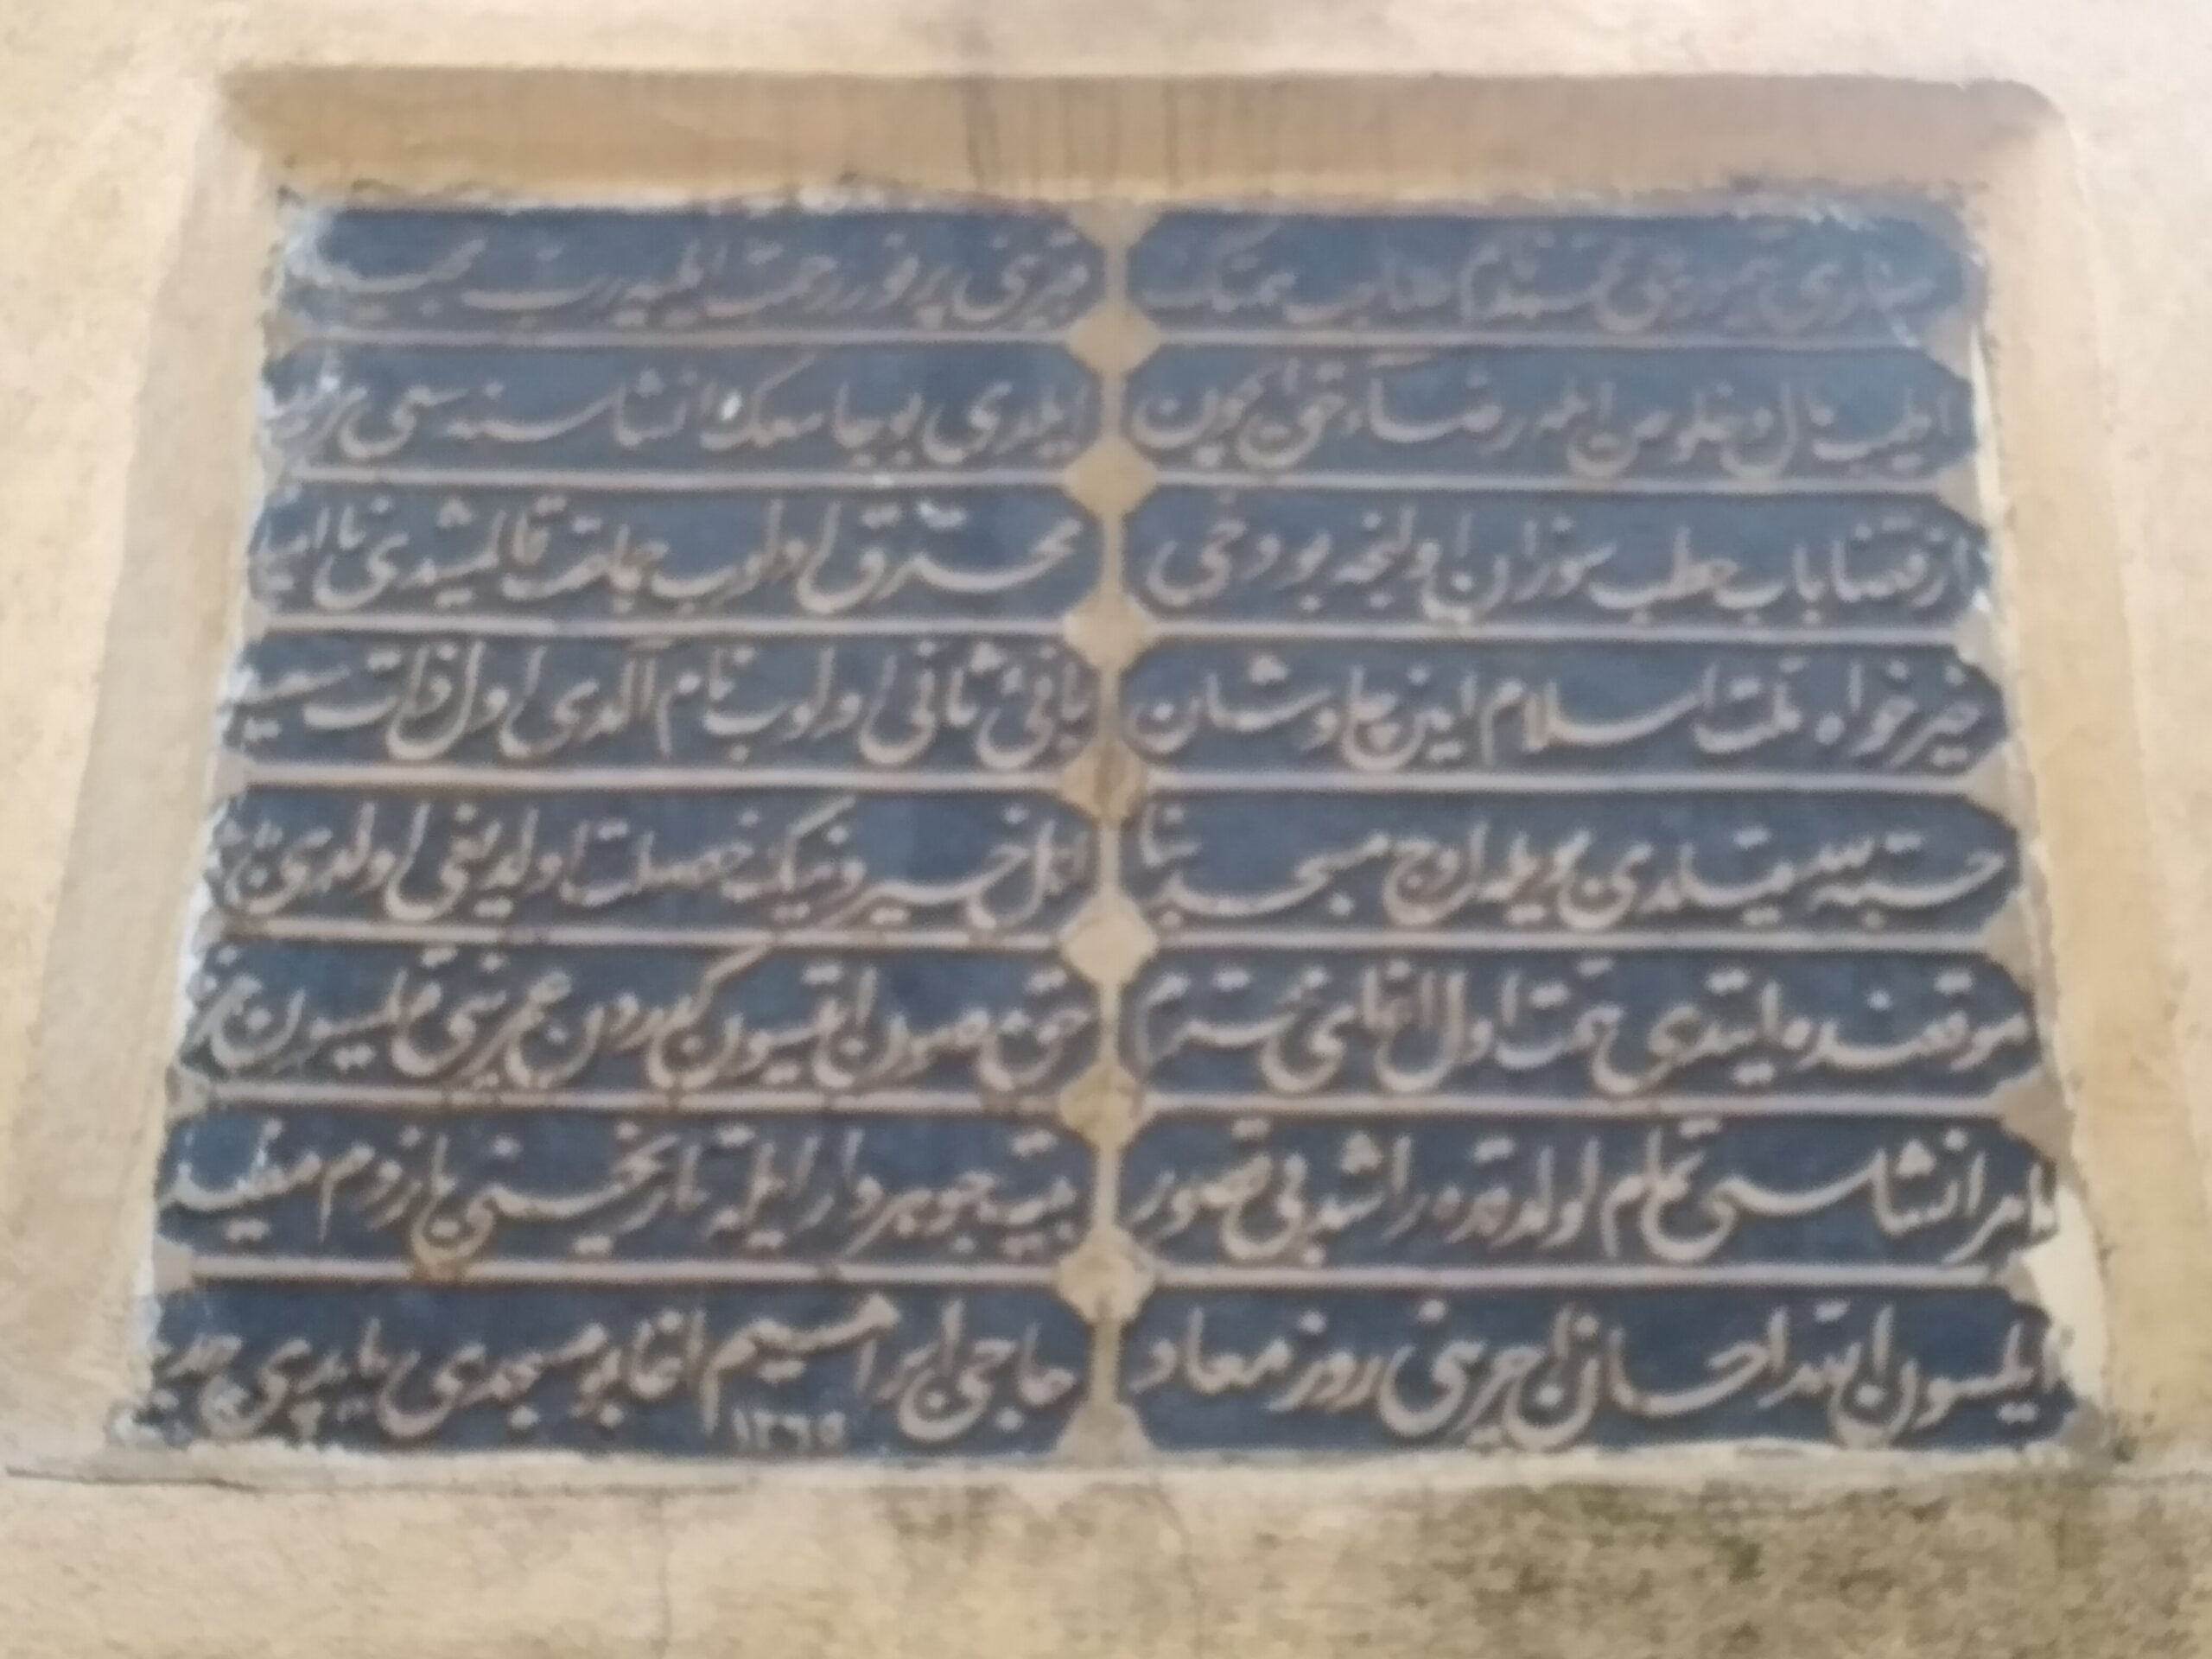 قبرینی پر نور رحمت ایلیه رب مجید
ایلیوب مال و خلوص ایله رضاء حق ایچون
ایلدی بو جامعك انشاسنه سعی
از قضا باب حطب سوزان اولنجه بو دخی
محترق اولوب چات قالمشدی نا امید
خیرخواه ملت اسلام امین چاوشان
بانئ ثانی اولوب نام آلدی اول ذات سعید
حسبة سیقلدی بویله اوچ مسجد بنا
اهل خیر و نیك خصلت اولدیغی اولدی
موقعنده ایتدی همت اول اغای محترم
حق مصون ایتسون کدردن عمرینی قیلسون مزید
ماهر انشاسی تمام اولدقده راشد بی قصور
بیت جوهردار ایله تاریخنی یازدم مفید
ایلسون الله احسان اجرینی روز معاد
حاجی ابراهیم اغا بو مسجدی یاپدی جدید
١٢٦٥